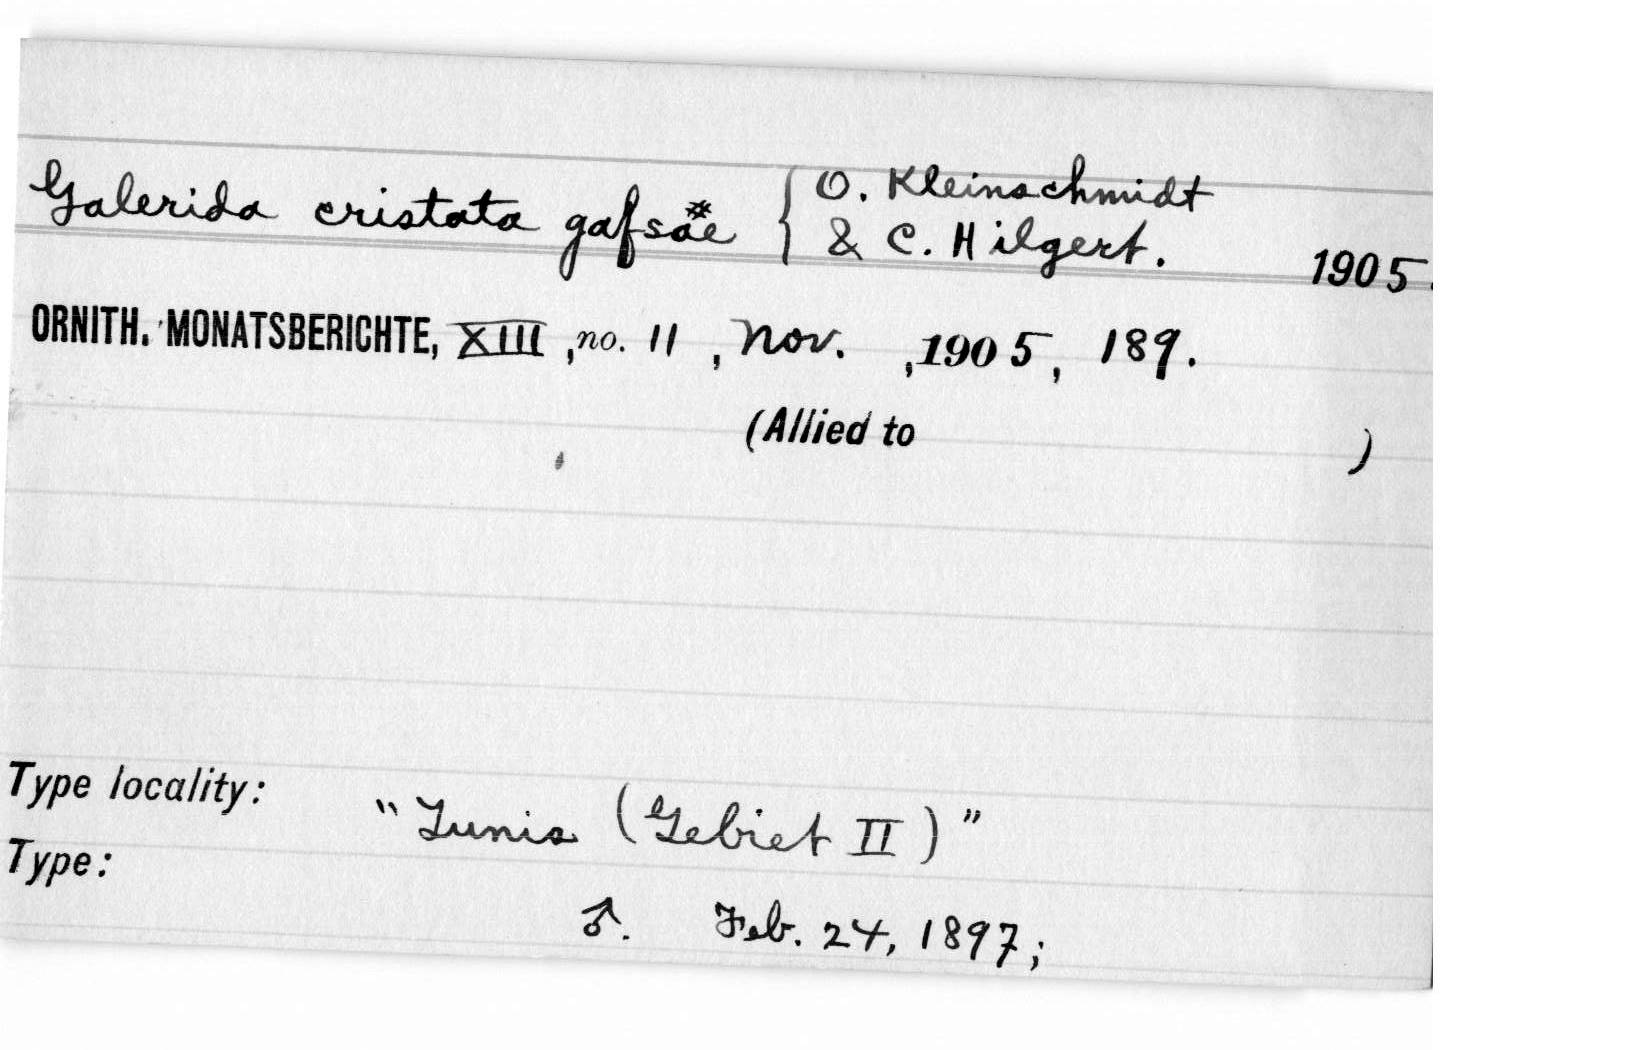 Galerida cristata gafsäe { O. Kleinschmidt
& C. Hilgert. 1905.
ORNITH. MONATSBERICHTE, XIII, no. 11, Nov. , 1905, 189.
(Allied to )
Type locality: "Tunis (Gebiet II)"
Type:
♂. Feb. 24, 1897;